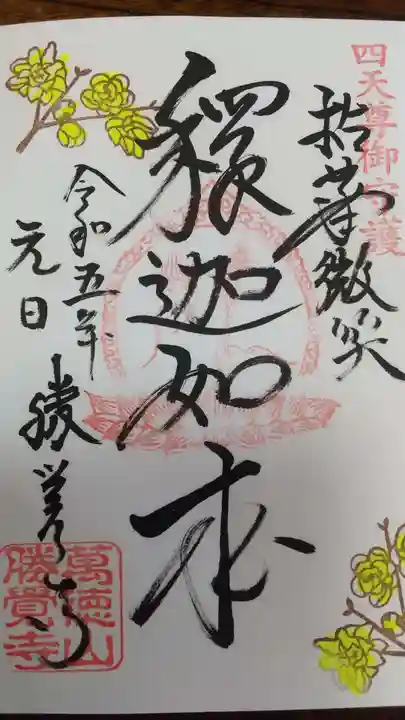 四天尊御守護
拈華微笑
釋迦如来
令和五年
元日
勝覺寺
萬徳山
勝覺寺